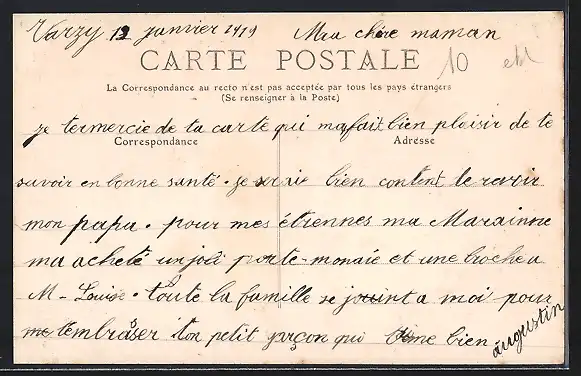 Varzy 12 janvier 1919 Ma chère maman
CARTE POSTALE
10
La Correspondance au recto n'est pas acceptée par tous les pays étrangers
(Se renseigner à la Poste)
je termercie de ta carte qui ma fait bien plaisir de te
Correspondance Adresse
savoir en bonne santé. je serai bien content le revoir
mon papa. pour mes étrennes ma Marainne
ma acheté un joli porte-monaie et une broche a
M-Louise. toute la famille se joint a moi pour
tembraser ton petit garçon qui time bien
augustin